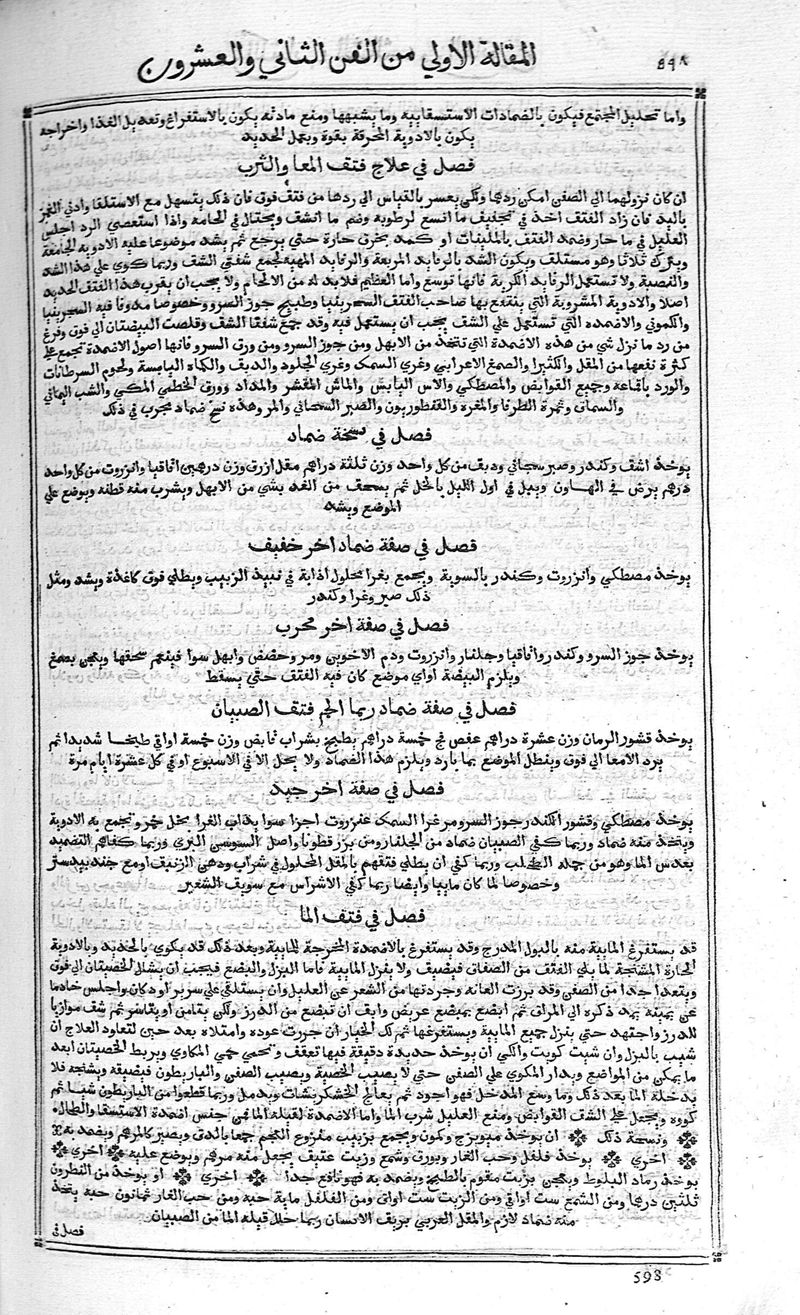 المقالة الاولي من الفن الثاني والعشرون
٥٩٨
واما تحليل المجتمع فيكون بالضمادات الاستسقاييه وما يشبهها ومنع مادته يكون بالاستفراغ وتعديل الغذا واخراجه
يكون بالادوية المحرقة بقوة وبعمل الحديد
فصل في علاج فتف المعا والثرب
ان كان نزولهما الي الصفن امكن ردها ولكن يعسر بالقياس الي ردها من فتف فوق فان ذلك يتسهل مع الاستلقا وادني الغمز
باليد فان زاد الفتف اخذ في تجفيف ما اتسع لرطوبه وضم ما انشف ويحتال في الحامه واذا استعصي الرد اجلس
العليل في ما حار وضمد الفتف بالملينات او كمد بخرق حارة حتي يرجع ثم يشد موضوعا عليه الادويه الجامعة
ويترك ثلاثا وهو مستلف ويكون الشد بالرفايد المربعة والرفايد المهيه لجمع شفتي الشف وربما كوي علي هذا الشد
ولا تستعمل الرفايد الكرية فانها توسع واما العظيم فلابد له من الالحام ولا يجب ان يقرب هذا الفتف الحديد
اصلا والادوية المشروبة التي ينتفع بها صاحب الفتف السجرينيا وطبيخ جوز السرو وخصوصا مدوفا فيه السجرينيا
والكموني والاضمده التي تستعمل علي الشف يجب ان يستعمل فيه وقد جمع شفتا الشف وقلصت البيضتان الي فوق وفرغ
من رد ما نزل شي من هذه الاضمدة التي تتخذ من الابهل ومن جوز السرو ومن ورق السرو فانها اصول الاضمدة تجمع علي
كثرة نفعها من المقل والكثيرا والصمغ الاعرابي وغري السمك وغري الجلود والدبف والكماه اليابسة ولحوم السرطانات
والورد باقماعه وجميع القوابض والمصطكي والاس اليابس والماش المقشر والمداد وورق الخطمي المكي والشب اليماني
والسماق وثمرة الطرفا والمغرة والقنطوريون والصبر السمجاني والمر وهذه نسخ ضماد مجرب في ذلك
فصل في نسخة ضماد
يوخذ اشف وكندر وصبر سمجاني ودبف من كل واحد وزن ثلثة دراهم مقل ازرق وزن درهمين اقاقيا وانزروت من كل واحد
درهم يرض في الهاون ويبل في اول الليل بالخل ثم يسحف من الغد بشي من الابهل ويشرب منه قطنه ويوضع علي
الموضع ويشد
فصل في صفة ضماد اخر خفيف
يوخذ مصطكي وانزروت وكندر بالسوية ويجمع بغرا محلول اذابة في نبيذ الزبيب ويطلي فوق كاغذة ويشد ومثل
ذلك صبر وغرا وكندر
فصل في صفة اخر مجرب
يوخذ جوز السرو وكندر واقاقيا وجلنار وانزروت ودم الاخوين ومر وحضض وابهل سوا فينعم سحقها ويعجن بصمغ
ويلزم البيضة اواي موضع كان فيه الفتف حتي يسقط
فصل في صفة ضماد ربما الحم فتف الصبيان
يوخذ قشور الرمان وزن عشرة دراهم عفص فج خمسة دراهم يطبخ بشراب قابض وزن خمسة اواقي طبخا شديدا ثم
يرد الامعا الي فوق وينطل الموضع بما بارد ويلزم هذا الضماد ولا يحل الا في الاسبوع او في كل عشرة ايام مرة
فصل في صفة اخر جيد
يوخذ مصطكي وقشور الكندر جوز السرو مر غرا السمك عنزروت اجزا سوا يذاب الغرا بخل خمر وتجمع به الادوية
ويتخذ منه ضماد وربما كفي الصبيان ضماد من الجلنار ومن بزر قطونا واصل السوسن البري وربما كفاهم التضميد
بعدس الما وهو من جملة الطحلب وربما كفي ان يطلي فتقهم بالمقل المحلول في شراب ودهن الزنبف او مع جندبيدستر
وخصوصا لما كان ماييا وايضا ربما كفي الاشراس مع سويف الشعير
فصل في فتف الما
قد يستفرغ المايية منه بالبول المدرج وقد يستفرغ بالاضمدة المخرجة للمايية وبعد ذلك قد يكوي بالحديد وبالادوية
الحارة المشنجة لما يلي الفتف من الصفاق فيضيف ولا ينزل المايية فاما البزل والبضع فيجب ان يشال الخصيتان الي فوق
ويتعدا جدا من الصفن وقد برزت العانه وجردتها من الشعر عن العليل وان يستلقي علي سرير او دكان واجلس خادما
عن يمينه يمد ذكره الي المراق ثم ابضع بمبضع عريض واتف ان تبضع من الدرز ولكن يتامن او يتاسر ثم شف موازيا
للدرز واجتهد حتي ينزل جميع المايية ويستفرغها ثم لك الخيار ان جررت عوده وامتلاه بعد حين لتعاود العلاج ان
شيب بالبزل وان شيت كويت والكي ان يوخذ حديدة دقيقة فيها تعقف وتحمي حمي المكاوي ويربط الخصيتان ابعد
ما يمكن من المواضع ويدار المكوي علي الصفن حتي لا يصيب الخصية ويصيب الصفن والباريطون فيضيقه ويشنجه فلا
يدخله الما بعد ذلك وما وسع المدخل فهو اجود ثم يعالج الخشكريشات ويدمل وربما قطعوا من الباريطون شيا ثم
كووه ويجعل علي الشف القوابض ومنع العليل شرب الما واما الاضمدة لقيله الما فمن جنس اضمدة الاستسقا والطحال
ونسخة ذلك ان يوخذ ميويزج وكمون ويجمع بزبيب منزوع العجم جمعا بالدق ويصير كالمرهم ويضمد به
اخري يوخذ فلفل وحب الغار وبورق وشمع وزيت عتيف يجعل منه مرهم ويوضع عليه اخري
يوخذ رماد البلوط ويعجن بزيت مقوم بالطبخ ويضمد به فهو نافع جدا اخري او يوخذ من النطرون
ثلثين درهما ومن الشمع ست اواقي ومن الزيت ست اواقي ومن الفلفل ماية حبه ومن حب الغار ثمانون حبه يتخذ
منه ضماد لازم والمقل العربي بريف الانسان ربما حلل قيله الما من الصبيان
فصل في
598